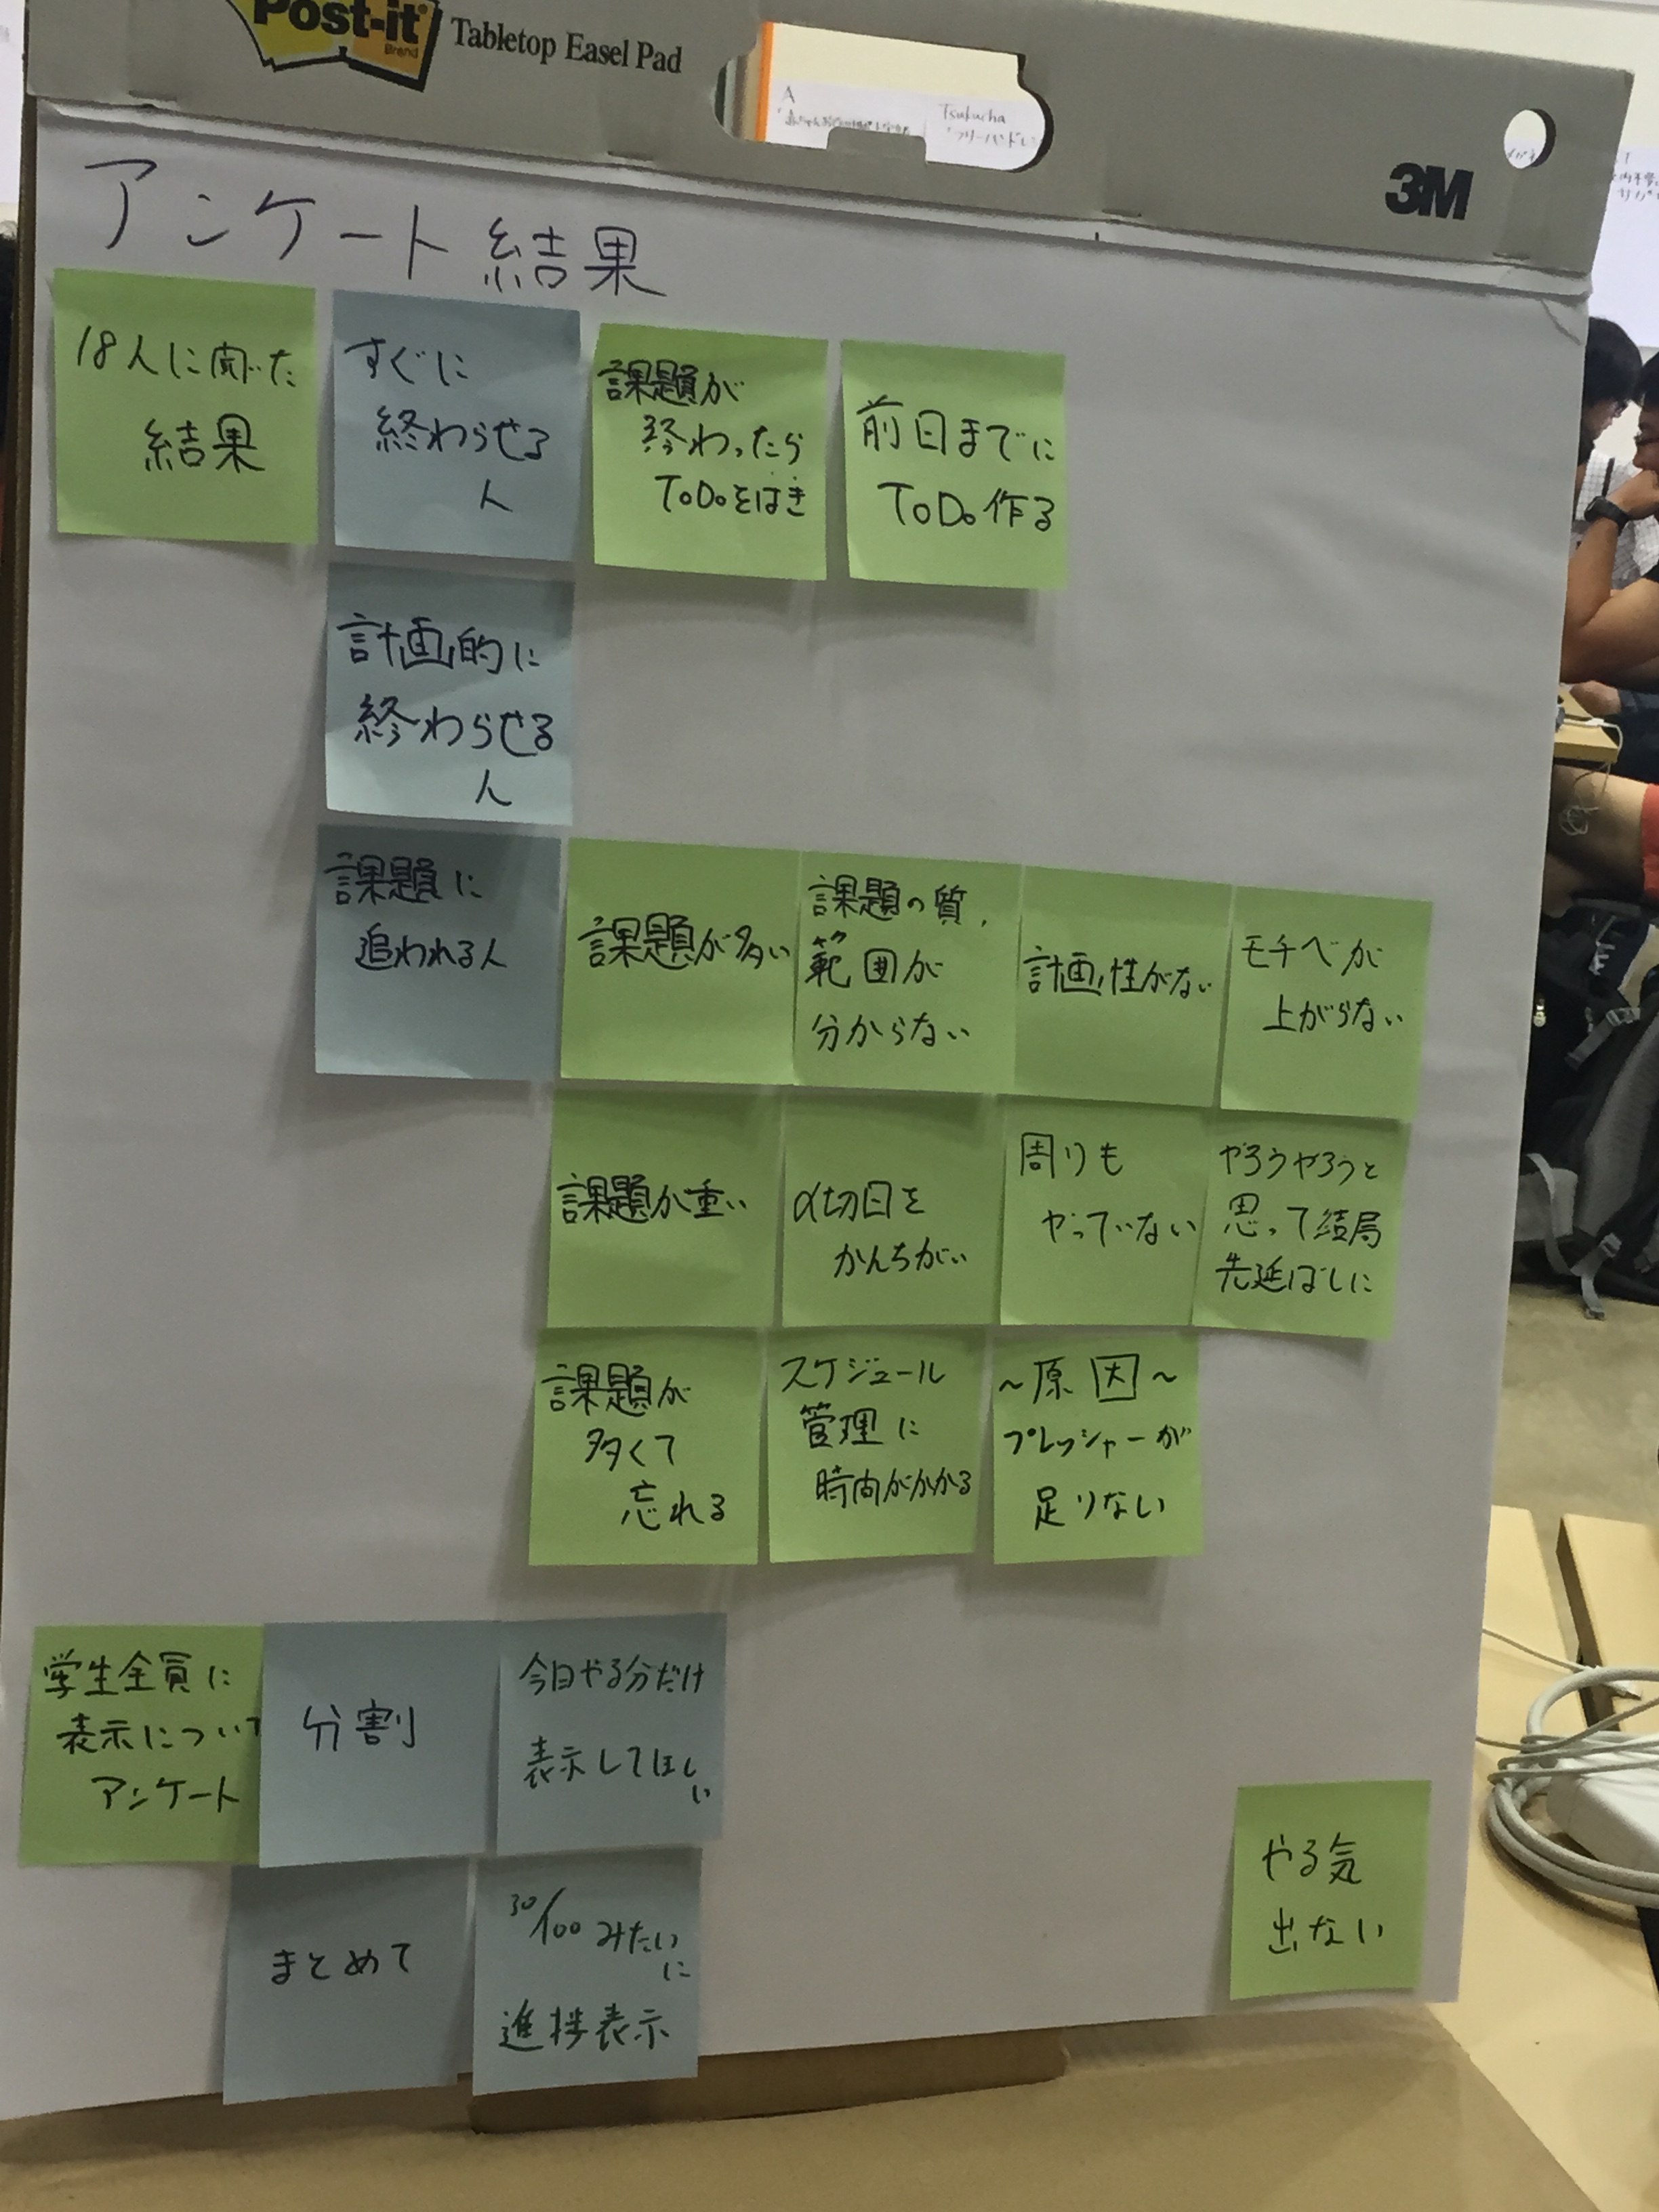 Post-it
Brand
Tabletop Easel Pad
3M
A
Tsukucha
アンケート結果
18人に聞いた
結果
すぐに
終わらせる
人
課題が
終わったら
ToDoをはき
前日までに
ToDo作る
計画的に
終わらせる
人
課題に
追われる人
課題が多い
課題の質、
範囲が
分からない
計画性がない
モチベが
上がらない
課題が重い
〆切日を
かんちがい
周りも
やっていない
やろうやろうと
思って結局
先延ばしに
課題が
多くて
忘れる
スケジュール
管理に
時間がかかる
~原因~
プレッシャーが
足りない
学生全員に
表示について
アンケート
分割
今日やる分だけ
表示してほしい
まとめて
30/100みたいに
進捗表示
やる気
出ない